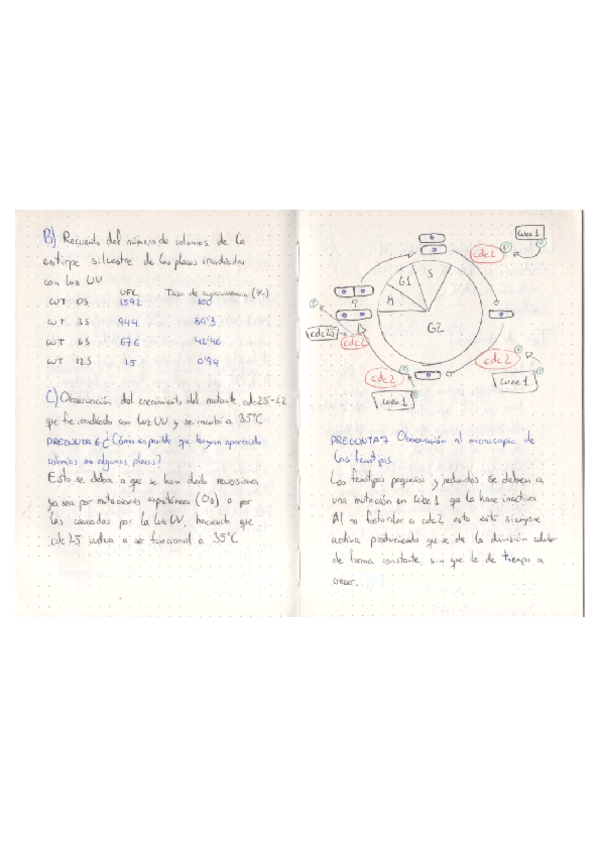 B) Recuento del número de colonias de la
estirpe silvestre de las placas irradiadas
con luz UV
UFC Tasa de supervivencia (%)
WT 0S 1592 100
WT 3S 944
WT 6S 676 42'46
WT 12S 15 0'94
C) Observación del crecimiento del mutante cdc25-22
que fue irradiado con luz UV y se incubó a 35°C
PREGUNTA 6 ¿Cómo es posible que hayan aparecido
colonias en algunas placas?
Esto se debería a que se han dado reversiones,
ya sea por mutaciones espontáneas (0s) o por
las causadas por la luz UV, haciendo que
cdc25 vuelva a ser funcional a 35°C
wee1
P
P
cdc2
S
G1
M
G2
P
cdc25
cdc2
P
cdc2
P
wee1
P
cdc2
wee1
PREGUNTA 7 Observación al microscopio de
los fenotipos
Los fenotipos pequeños y redondos se deben a
una mutación en wee1 que la hace inactiva.
Al no fosforilar a cdc2 esta está siempre
activa produciendo que se de la división celular
de forma constante, sin que le de tiempo a
crecer.